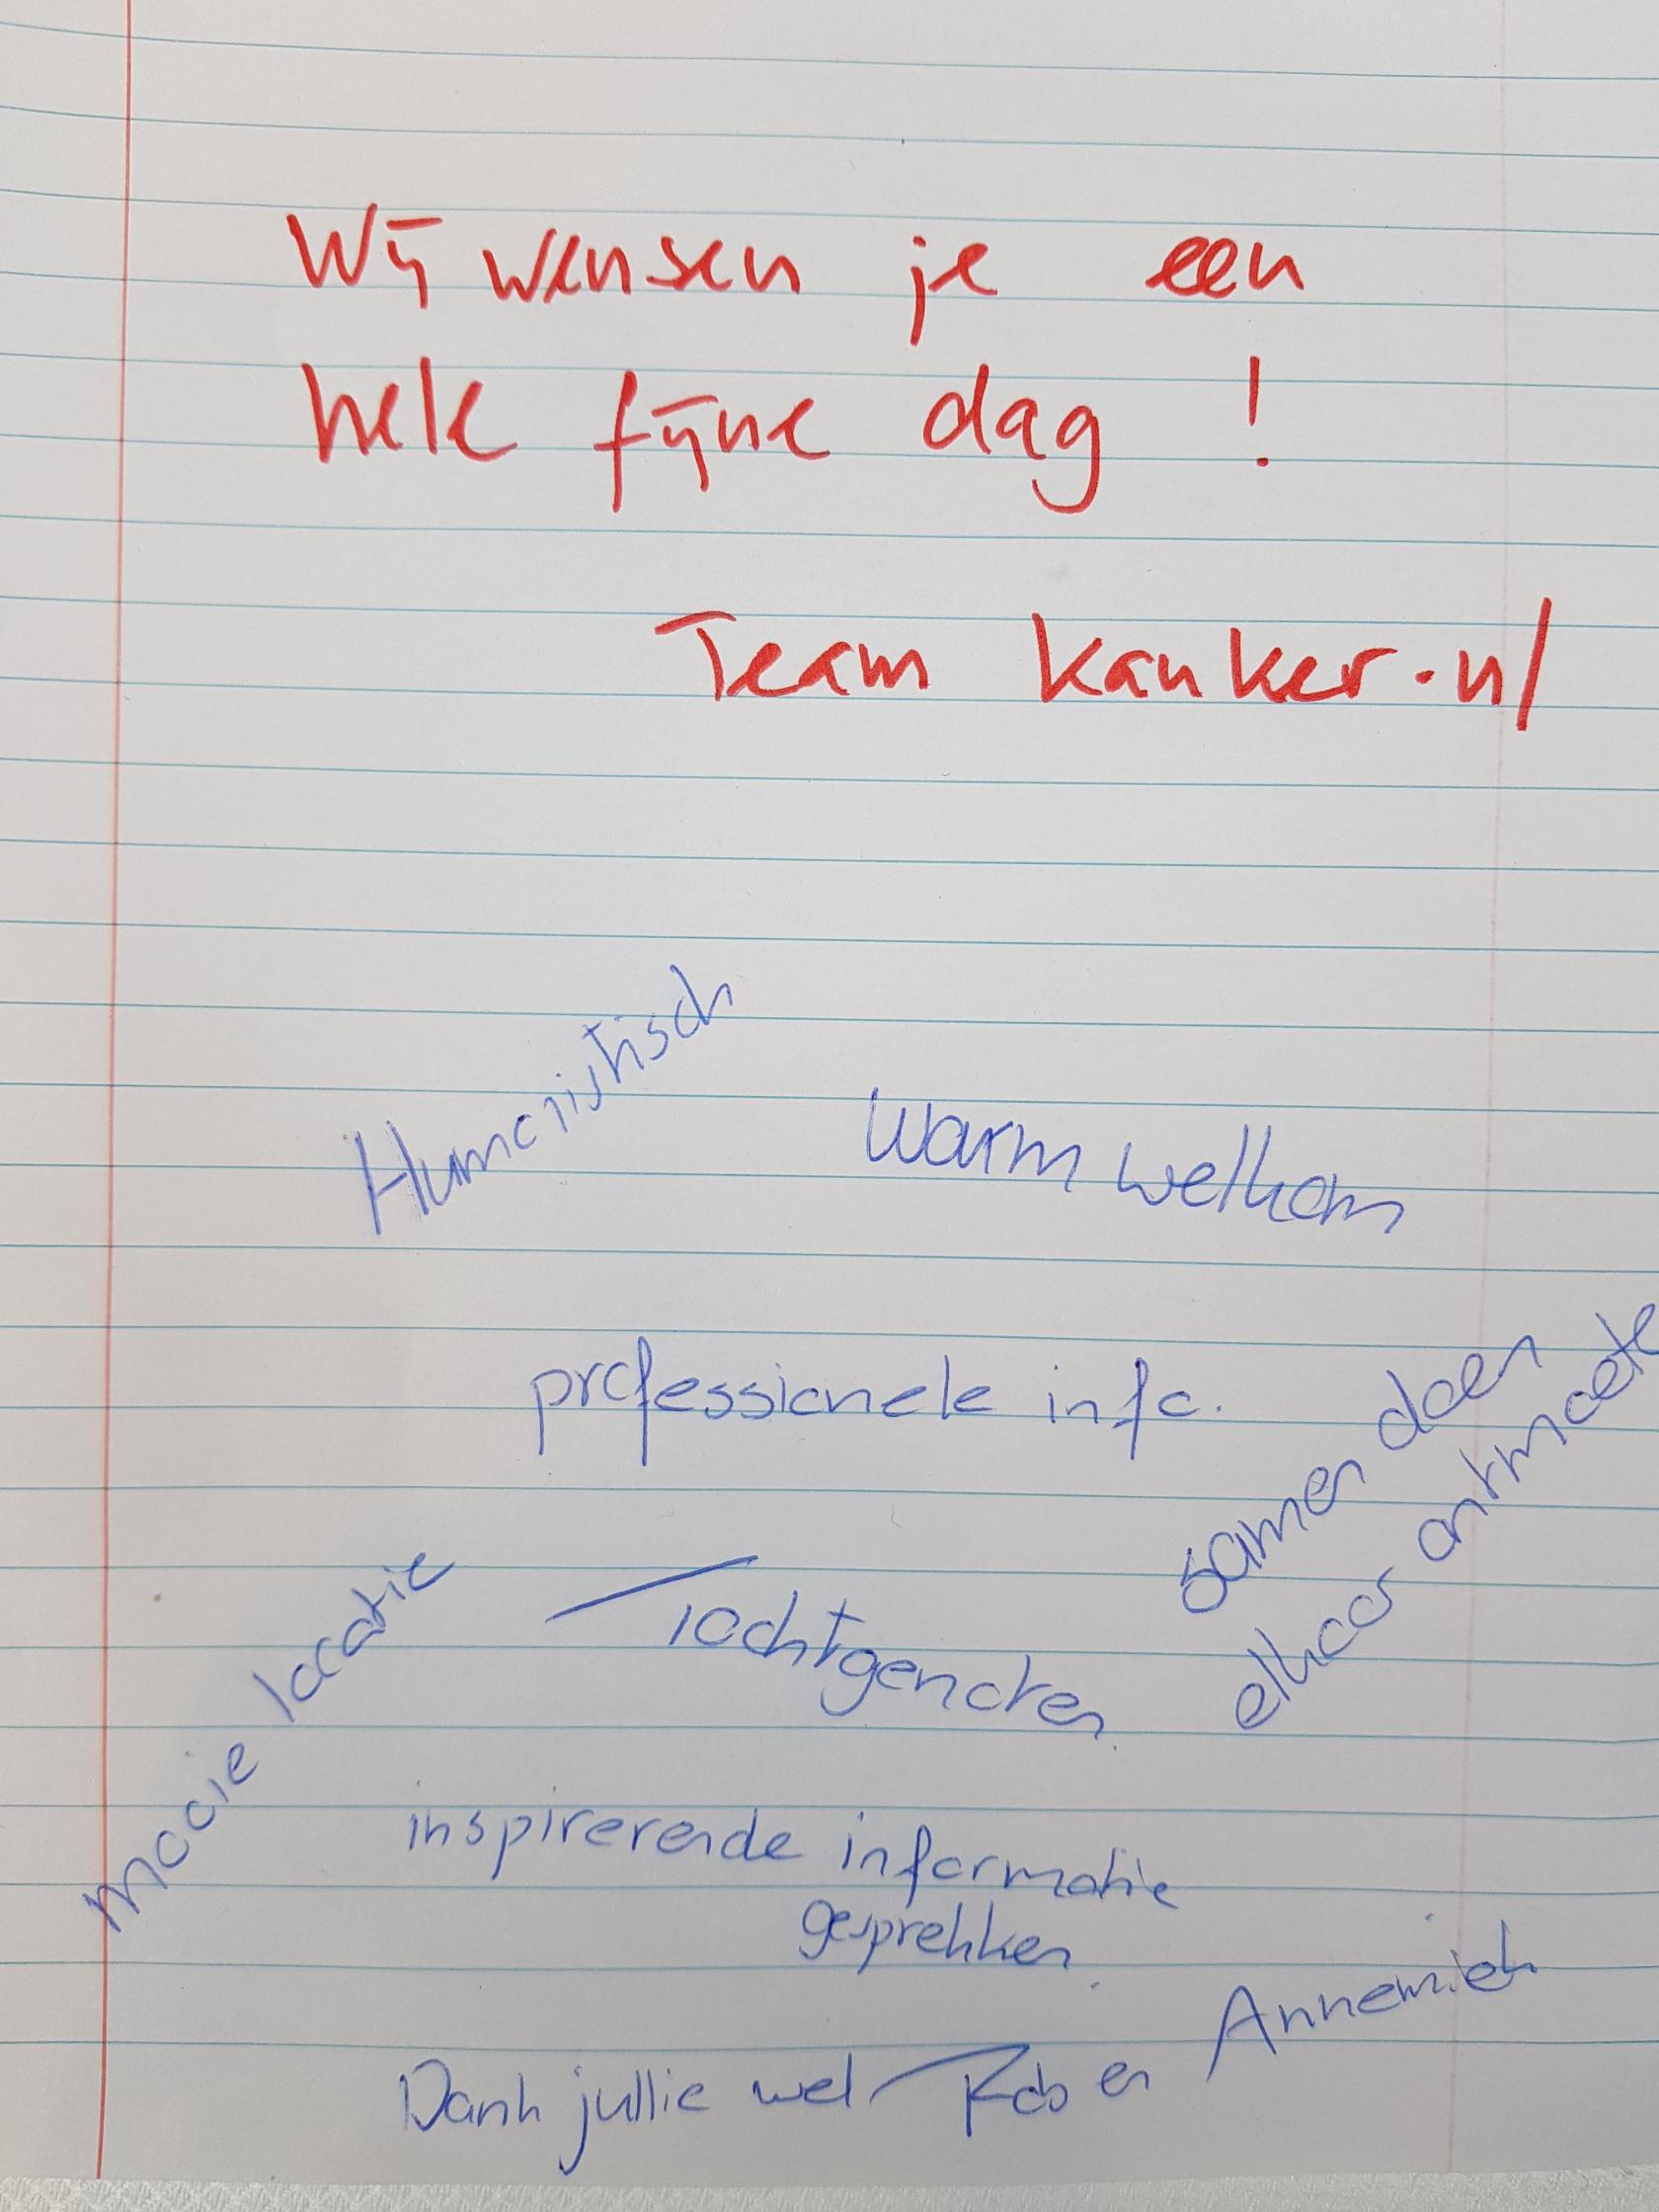 Wij wensen je een
hele fijne dag !
Team kanker.nl
Humoristisch
Warm welkom
professionele info.
samen doen
elkaar ontmoete
mooie locatie
Tochtgenoten
inspirerende informatie
gesprekken
Dank jullie wel Rob en Annemiek